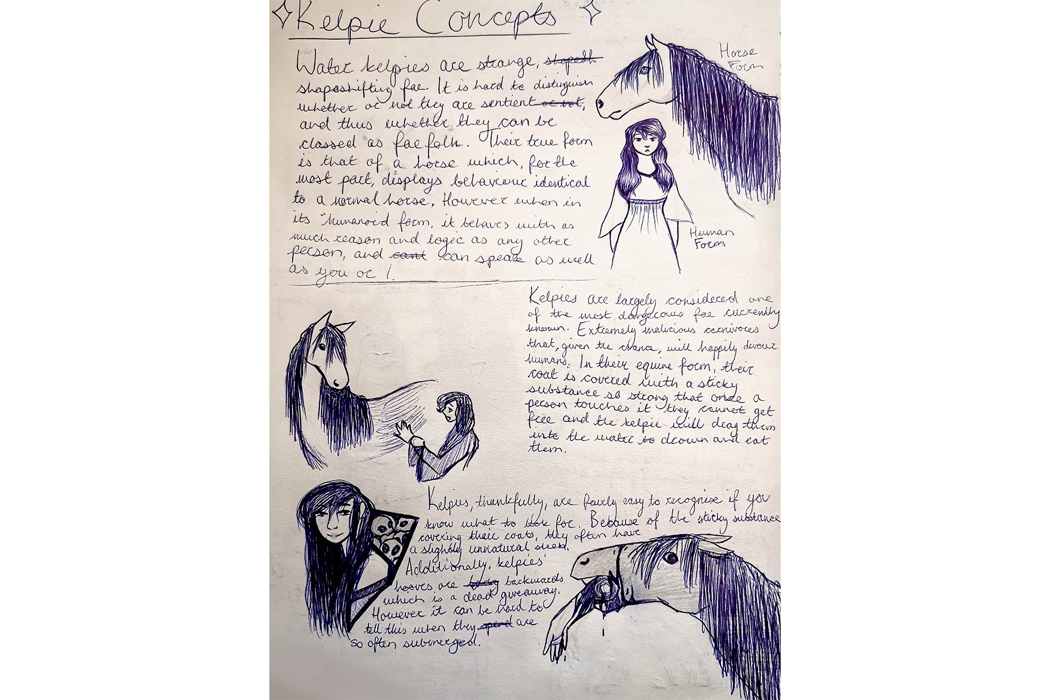 Kelpie Concepts
Water kelpies are strange,
shapeshifting fae. It is hard to distinguish
whether or not they are sentient or not,
and thus whether they can be
classed as fae folk. Their true form
is that of a horse which, for the
most part, displays behaviour identical
to a normal horse. However when in
its "humanoid form, it behaves with as
much reason and logic as any other
person, and cant can speak as well
as you or I.
Horse
Form
Human
Form
Kelpies are largely considered one
of the most dangerous fae currently
known. Extremely malicious carnivores
that, given the chance, will happily devour
humans. In their equine form, their
coat is covered with a sticky
substance so strong that once a
person touches it they cannot get
free and the kelpie will drag them
into the water to drown and eat
them.
Kelpies, thankfully, are fairly easy to recognise if you
know what to look for. Because of the sticky substance
covering their coats, they often have
a slightly unnatural sheen.
Additionally, kelpies'
hooves are backwards
which is a dead giveaway.
However it can be hard to
tell this when they spend are
so often submerged.